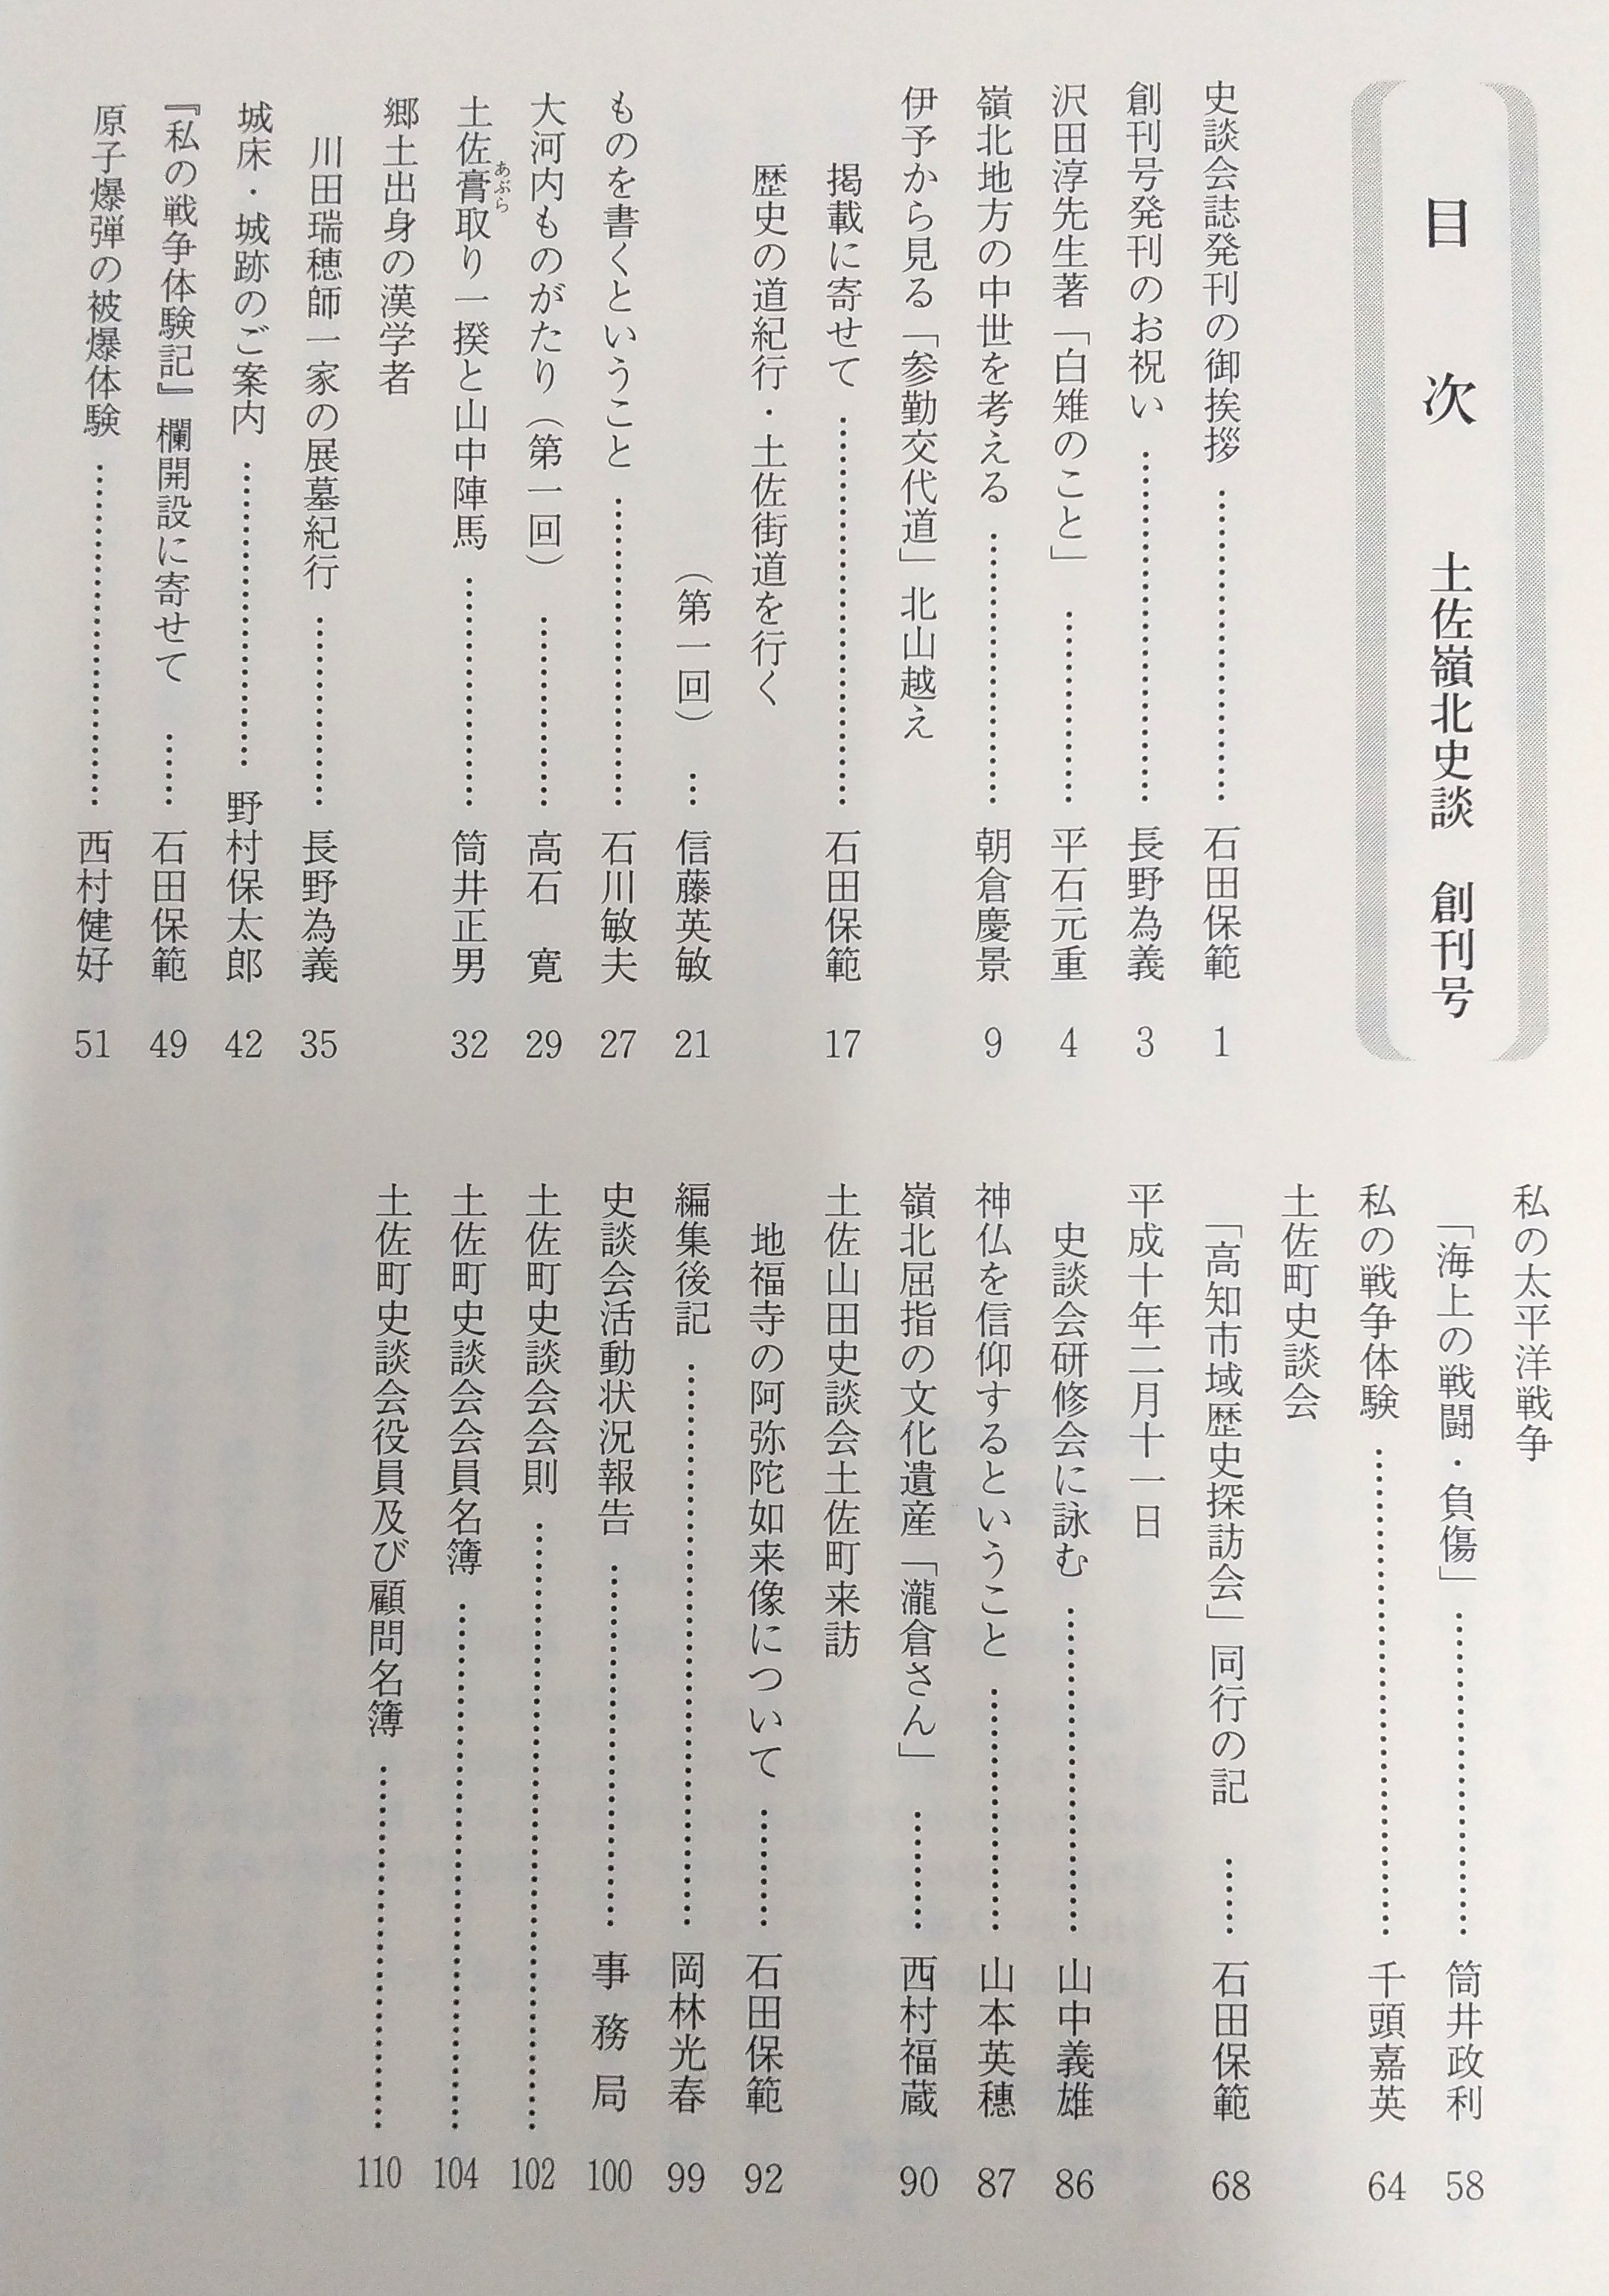 目次 土佐嶺北史談 創刊号
史談会誌発刊の御挨拶 ……… 石田保範 1
創刊号発刊のお祝い ……… 長野為義 3
沢田淳先生著「白雉のこと」 ……… 平石元重 4
嶺北地方の中世を考える ……… 朝倉慶景 9
伊予から見る「参勤交代道」北山越え
掲載に寄せて ……… 石田保範 17
歴史の道紀行・土佐街道を行く
（第一回） … 信藤英敏 21
ものを書くということ ……… 石川敏夫 27
大河内ものがたり（第一回） ……… 高石 寛 29
土佐膏取り一揆と山中陣馬 ……… 筒井正男 32
あぶら
郷土出身の漢学者
川田瑞穂師一家の展墓紀行 ……… 長野為義 35
城床・城跡のご案内 ……… 野村保太郎 42
『私の戦争体験記』欄開設に寄せて …… 石田保範 49
原子爆弾の被爆体験 ……… 西村健好 51
私の太平洋戦争
「海上の戦闘・負傷」 ……… 筒井政利 58
私の戦争体験 ……… 千頭嘉英 64
土佐町史談会
「高知市域歴史探訪会」同行の記 …… 石田保範 68
平成十年二月十一日
史談会研修会に詠む ……… 山中義雄 86
神仏を信仰するということ ……… 山本英穂 87
嶺北屈指の文化遺産「瀧倉さん」 ……… 西村福蔵 90
土佐山田史談会土佐町来訪
地福寺の阿弥陀如来像について ……… 石田保範 92
編集後記 ……… 岡林光春 99
史談会活動状況報告 ……… 事務局 100
土佐町史談会会則 ……… 102
土佐町史談会会員名簿 ……… 104
土佐町史談会役員及び顧問名簿 ……… 110